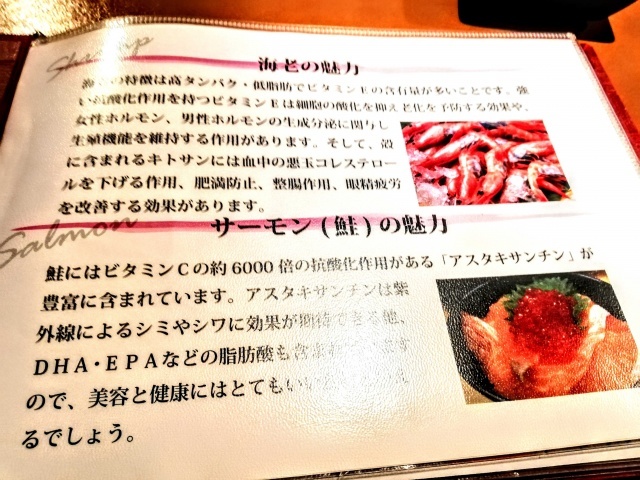 Shrimp
海老の魅力
海老の特徴は高タンパク・低脂肪でビタミンEの含有量が多いことです。強
い抗酸化作用を持つビタミンEは細胞の酸化を抑え老化を予防する効果や、
女性ホルモン、男性ホルモンの生成分泌に関与し
生殖機能を維持する作用があります。そして、殻
に含まれるキトサンには血中の悪玉コレステロー
ルを下げる作用、肥満防止、整腸作用、眼精疲労
を改善する効果があります。
Salmon
サーモン(鮭)の魅力
鮭にはビタミンCの約6000倍の抗酸化作用がある「アスタキサンチン」が
豊富に含まれています。アスタキサンチンは紫
外線によるシミやシワに効果が期待できる他、
DHA・EPAなどの脂肪酸も含まれています
ので、美容と健康にはとてもいい
るでしょう。